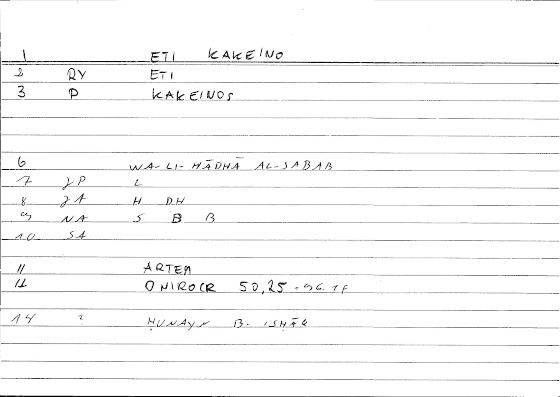 1 ETI KAKEINO
2 RY ETI
3 P KAKEINOS
6 WA-LI-HĀDHĀ AL-SABAB
7 JP L
8 JA H DH
9 NA S B B
10 SA
11 ARTEM
12 ONIROCR 50,25
14 ḤUNAYN B. ISḤĀQ